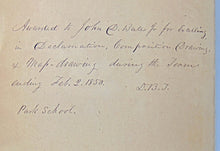 Awarded to John D. Bates Jr for Excelling
in Declamation, Composition Drawing,
& Map-drawing during the Term
ending Feb. 2. 1850.
D.B.T.
Park School.